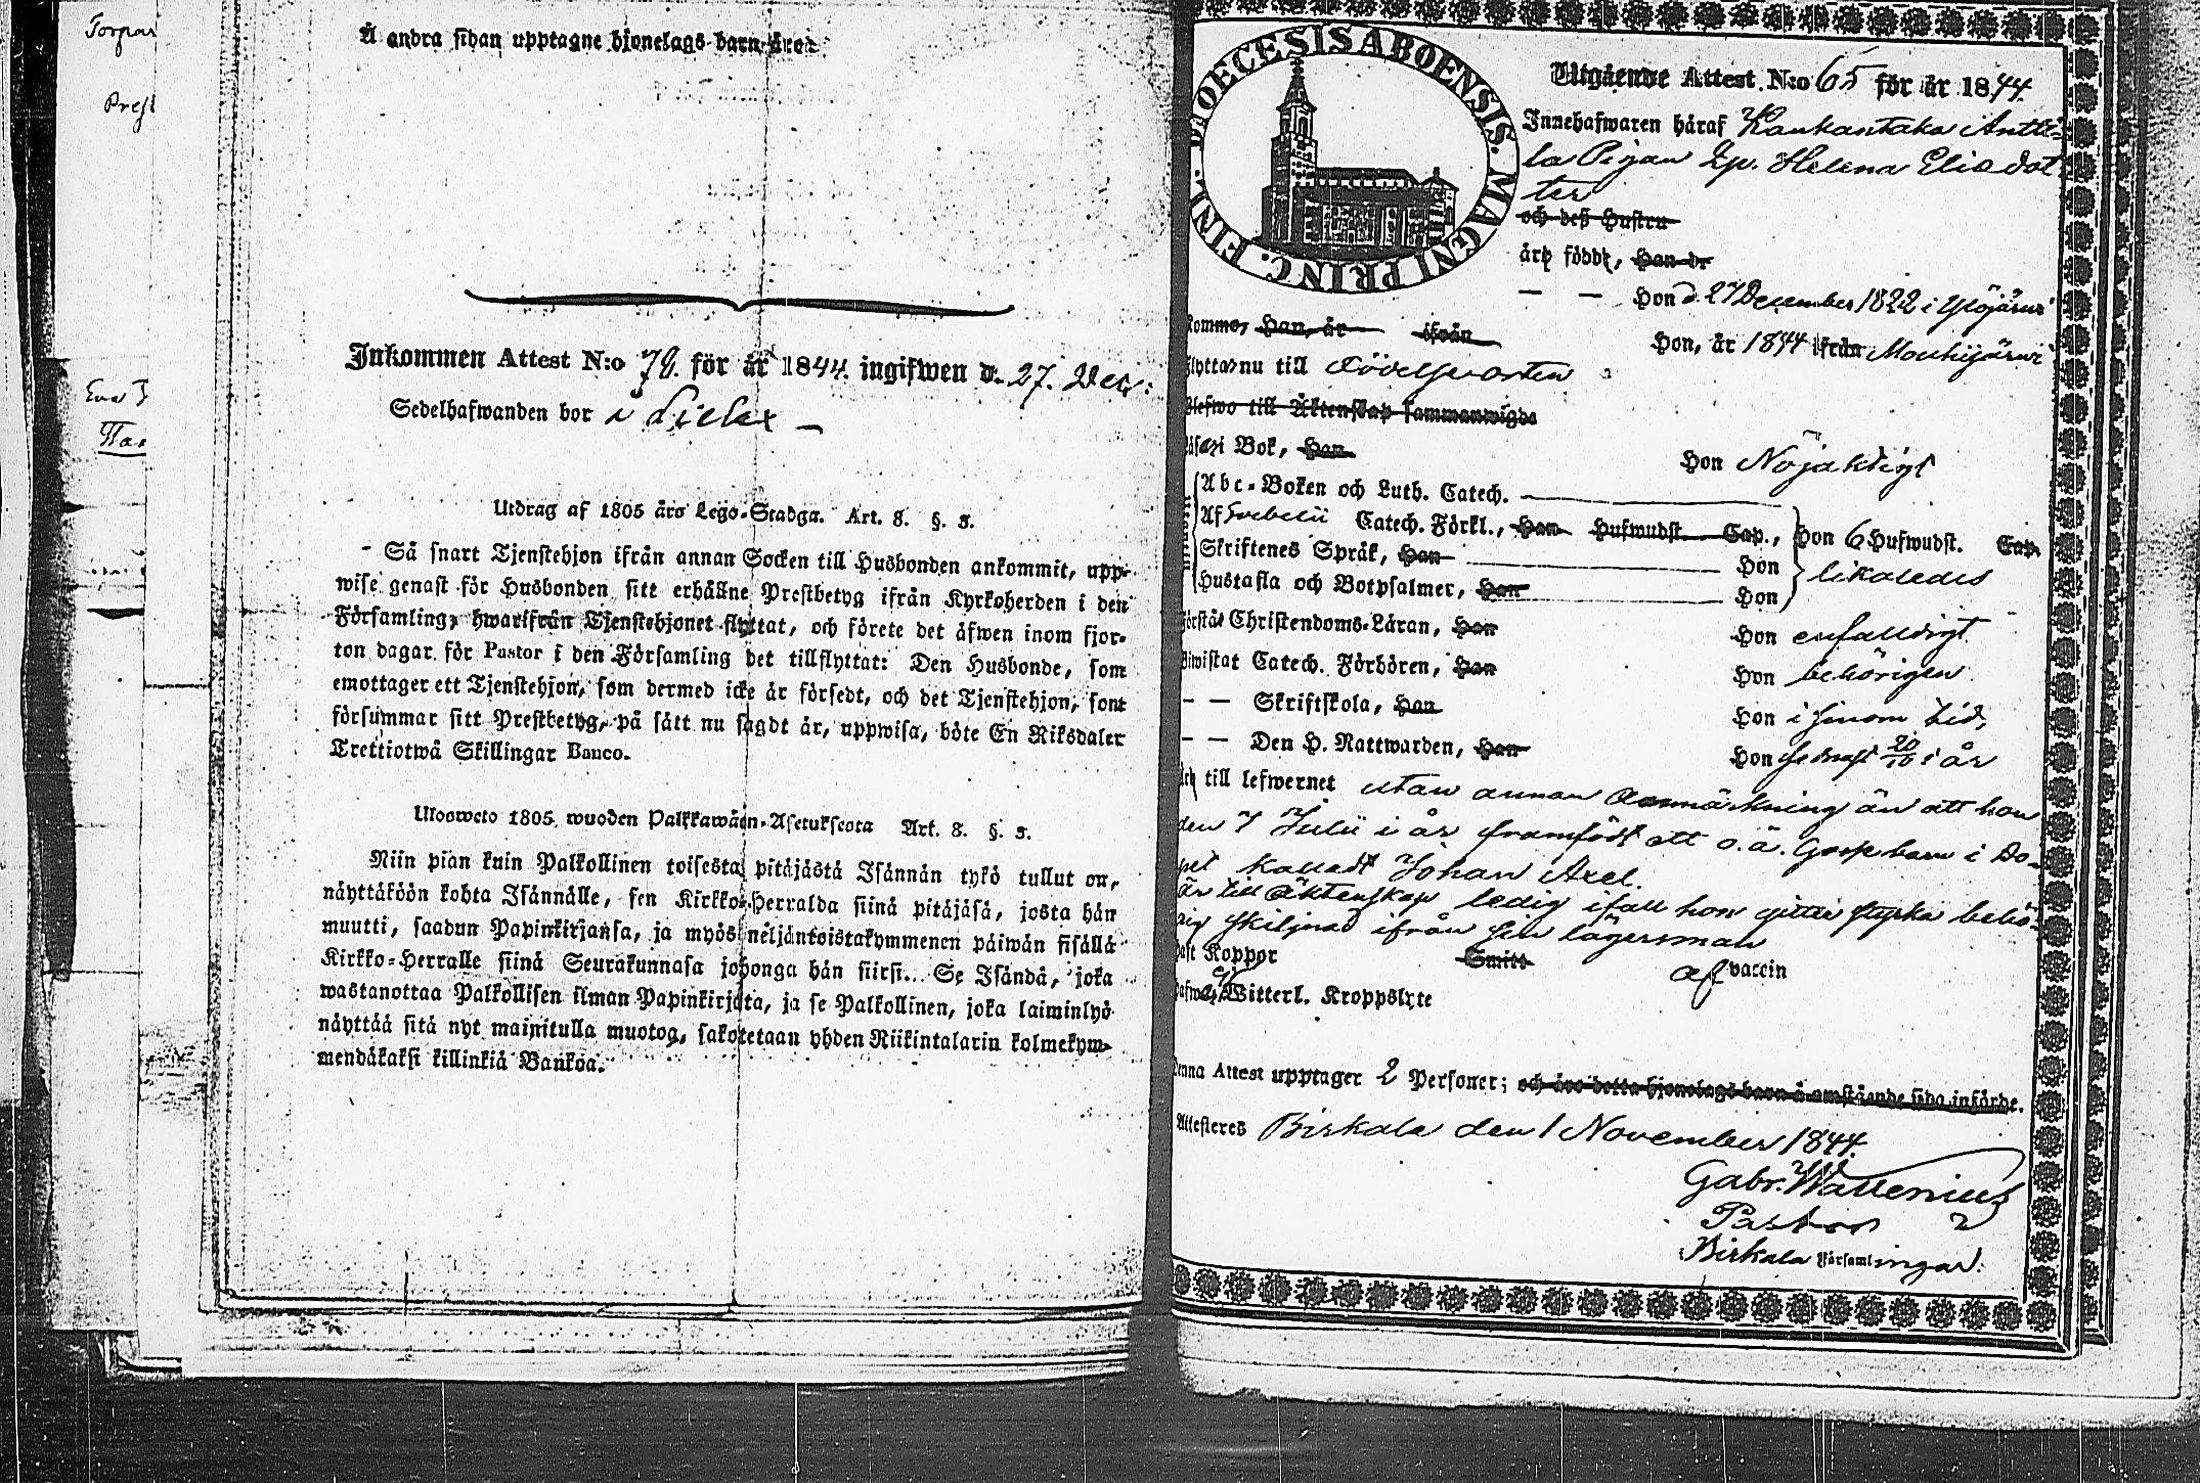 Torpar
Prest
Eva
Å andra sidan upptagne hjonelags-barn äro:
Inkommen Attest N:o 79. för år 1844. ingifwen d. 27. Dec:
Sedelhafwanden bor i
Utdrag af 1805 års Lego-Stadga. Art. 8. §. 3.
Så snart Tjenstehjon ifrån annan Socken till Husbonden ankommit, upp-
wise genast för Husbonden sitt erhållne Prestbetyg ifrån Kyrkoherden i den
Församling, hwarifrån Tjenstehjonet flyttat, och förete det äfwen inom fjor-
ton dagar för Pastor i den Församling det tillflyttat: Den Husbonde, som
emottager ett Tjenstehjon, som dermed icke är försedt, och det Tjenstehjon, som
försummar sitt Prestbetyg, på sätt nu sagdt är, uppwisa, böte En Riksdaler
Trettiotwå Skillingar Banco.
Ulosweto 1805 wuoden Palkkawäen-Asetuksesta Art. 8. §. 3.
Niin pian kuin Palkollinen toisesta pitäjästä Isännän tykö tullut on,
näyttäköön kohta Isännälle, sen Kirkko-Herralda siinä pitäjäsä, josta hän
muutti, saadun Papinkirjansa, ja myös neljäntoistakymmenen päiwän sisällä
Kirkko-Herralle siinä Seurakunnasa johonga hän siirsi. Se Isändä, joka
wastanottaa Palkollisen ilman Papinkirjata, ja se Palkollinen, joka laiminlyö
näyttää sitä nyt mainitulla muotoa, sakotetaan yhden Riikintalarin kolmekym-
mendäkaksi killinkiä Bankoa.
DIOECESIS ABOENSIS. MAGNI PRINC. FINL.
Utgående Attest N:o 65 för år 1844.
Innehafwaren häraf Kaukantaka Antti-
la Pigan Helena Eliedot
ter
och deß Hustru
är född, Han d:
— — Hon d. 27 December 1822 i Ylöjärvi
kommo, Han, år ifrån Hon, år 1844 ifrån Mouhijärvi
flyttar nu till
Blefwo till Äktenskap sammanwigde
läser i Bok, Han Hon Nöjaktigt
Abc-Boken och Luth. Catech.
Af Svebelii Catech. Förkl., Han Hufwudst. Cap., Hon 6 Hufwudst. Cap.
Skriftenes Språk, Han Hon likaledes
Hustafla och Botpsalmer, Han Hon
förstår Christendoms-Läran, Han Hon enfalldigt
Biwistat Catech. Förhören, Han Hon behörigen
— — Skriftskola, Han Hon i sinom tid,
— — Den H. Nattwarden, Han Hon senast 20/10 i år
Är till lefwernet utan annan anmärkning än att hon
den 7 Julii i år framfödt ett o.ä. Goss barn i Do-
pet kalladt Johan Axel.
Är till Äktenskap ledig ifall hon gitter styrka behö-
rig skiljnad ifrån sin lägersman
haft Koppor Smitt af vaccin
hafwer Witterl. Kroppslyte
Denna Attest upptager 2 Personer; och äro detta hjonelags barn å omstående sida införde.
Attesteres Birkala den 1 November 1844.
Gabr. Wallenius
Pastor
Birkala Församlingar.